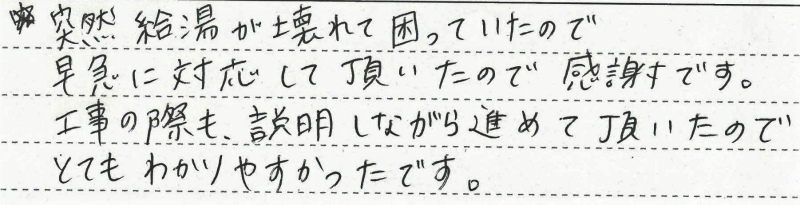 突然 給湯が壊れて困っていたので
早急に対応して頂いたので 感謝です。
工事の際も、説明しながら進めて頂いたので
とてもわかりやすかったです。